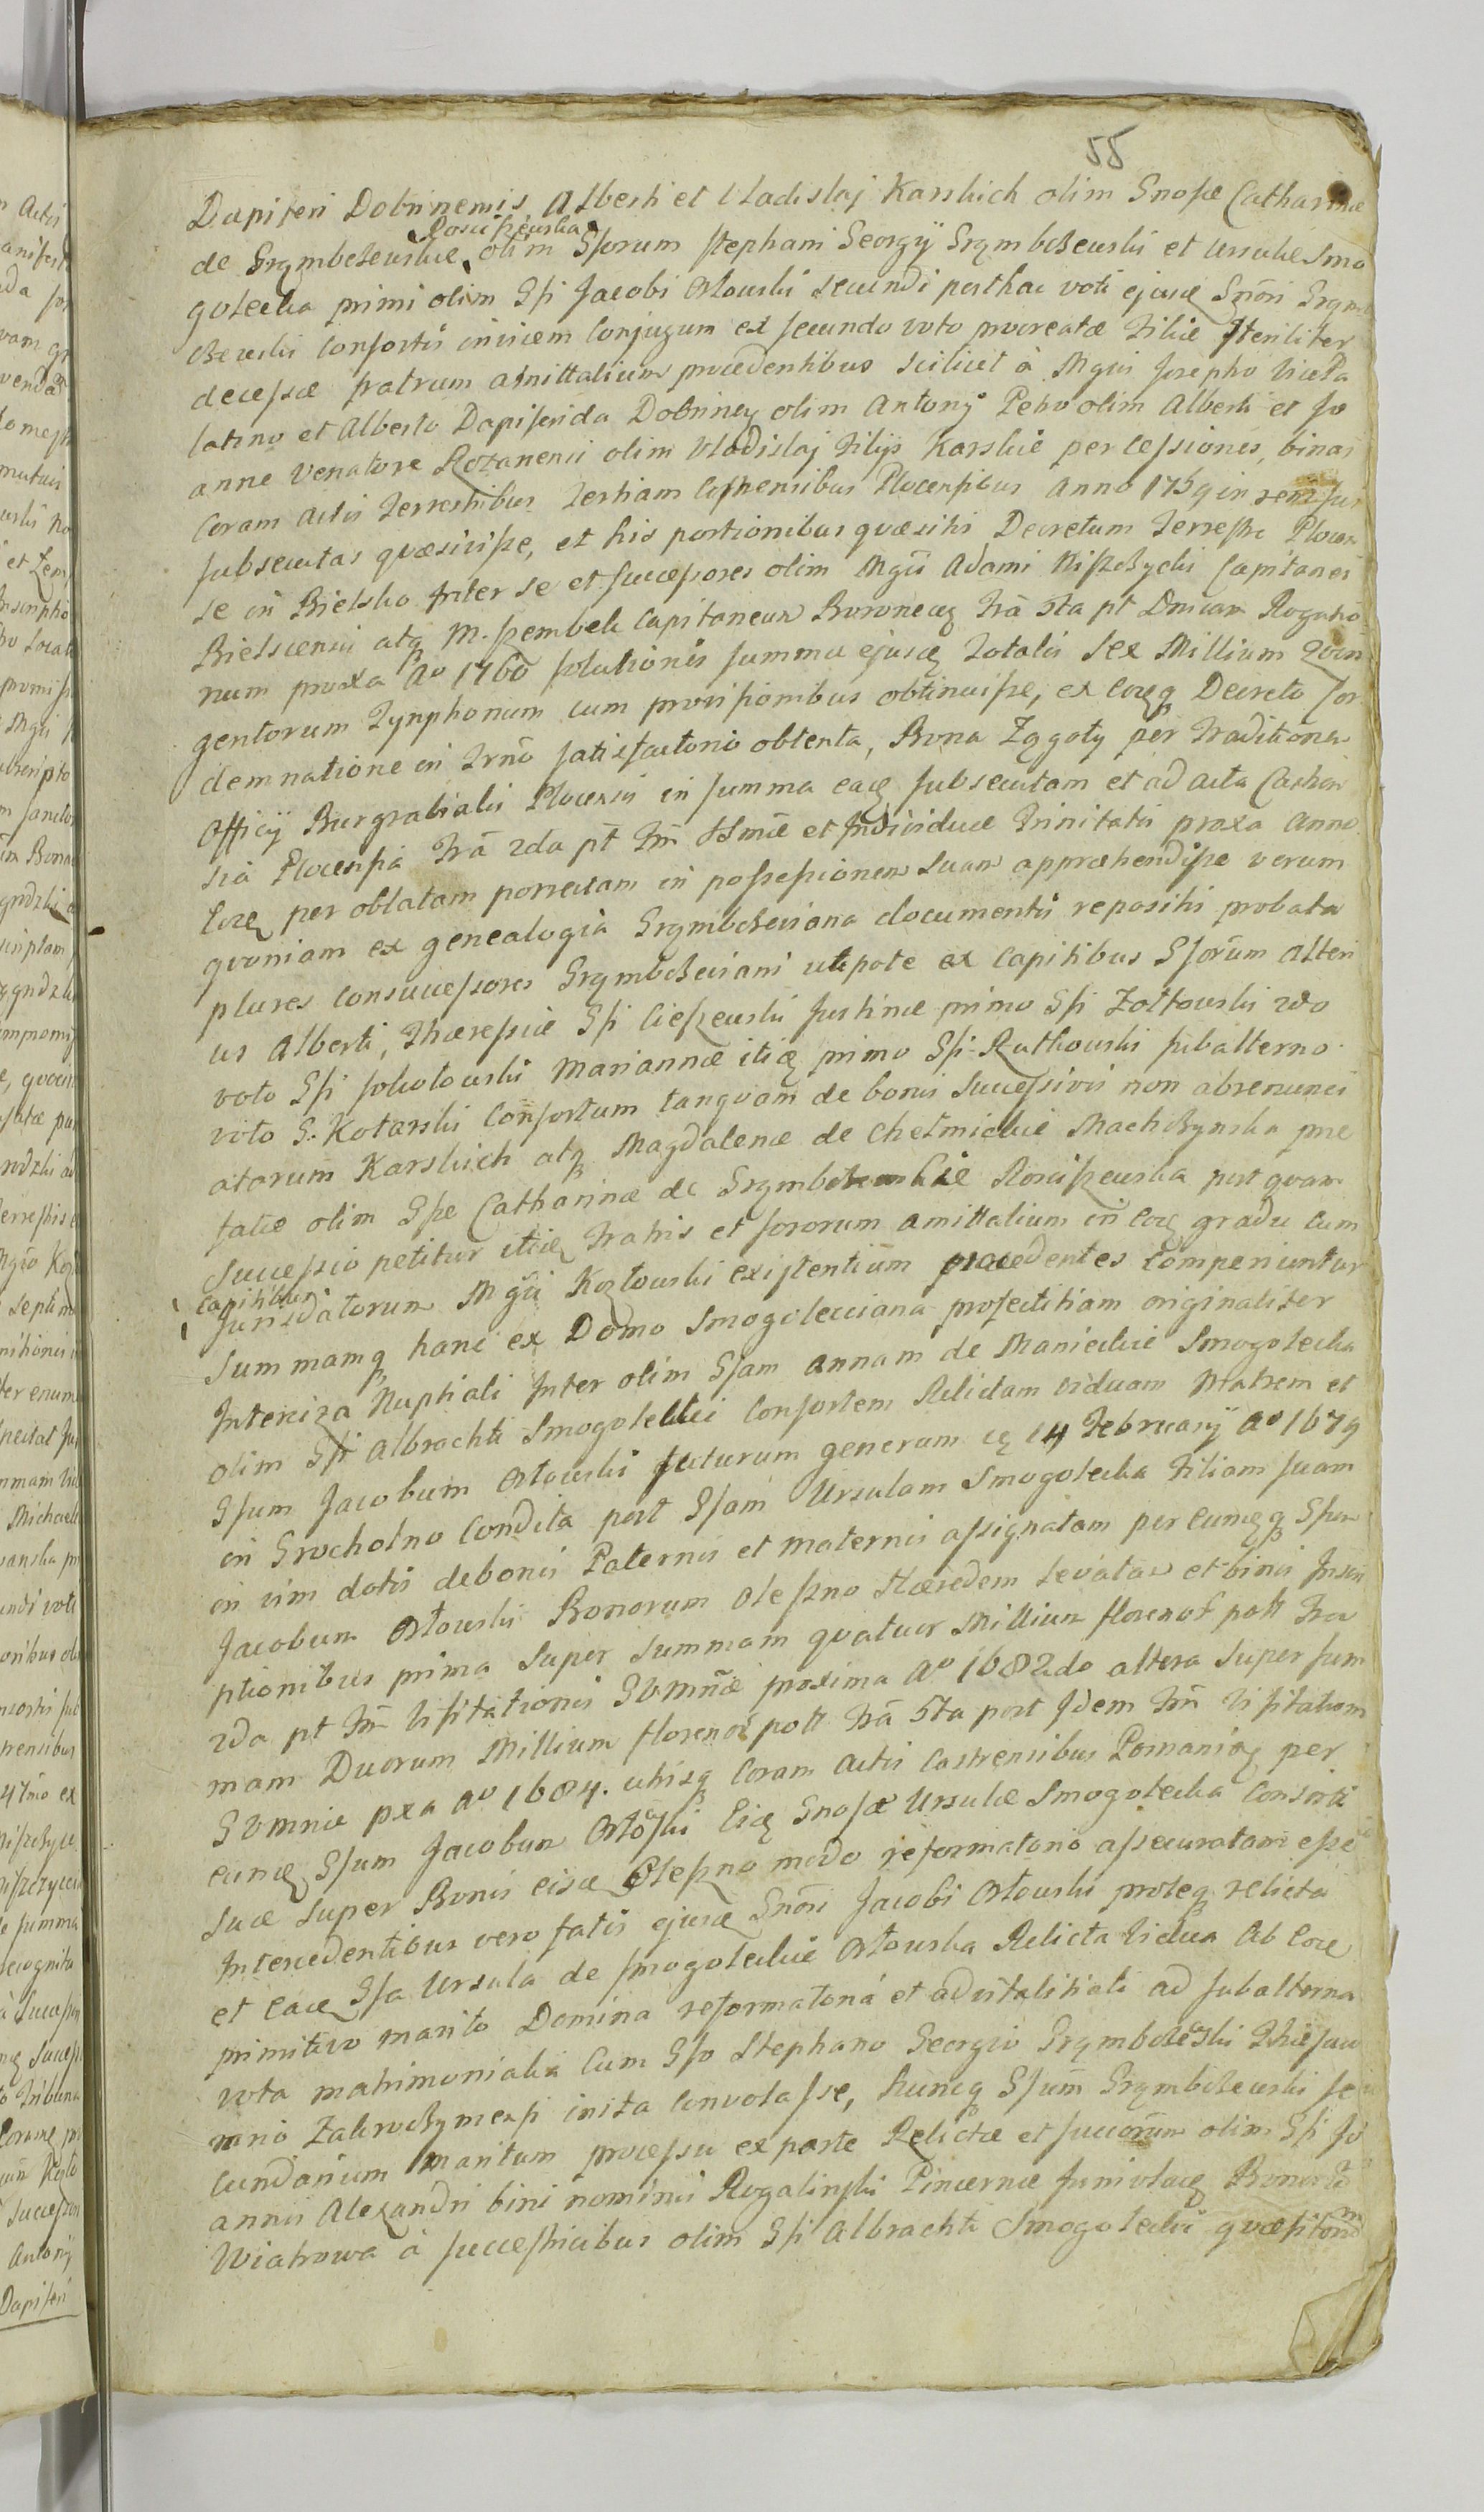 55
Dapiferi Dobrinensis Alberti et Vladislaj Karskich olim Gnosæ Catharinæ
de Grzymbczewskie Rosciszewska olim Gsorum Stephani Georgÿ Grzymbczewski et Ursulæ Smo
golecka primi olim Gsi Jacobi Orłowski secundi posthac voti ejusq Gnōsi Grzym
Czewski Consortis invicem Conjugum ex secundo voto procreatæ Filiæ Steriliter
decessæ fratrum amittalium procedentibus scilicet à Mgcis Josepho Vice Pa
latino et Alberto Dapiferida Dobrineq olim Antonÿ Petro olim Alberti et Jo
anne Venatore Rozanensi olim Vladislaj Filijs Karskie per cessiones, binas
Coram Actis Terrestribus Tertiam Castrensibus Plocensibus Anno 1759 in rem sui
subsecutas quæsivisse, et his portionibus quæsitis Decretum Terrestre Plocen
se in Bielsko Inter se et successores olim Mgci Adami Niszczycki Capitanei
Bielscensis atq M. Szembek Capitaneum Ruroneceq Frã 5ta pt Dnicam Rogatio
num proxa Aº 1760 solutionis summæ ejusq Totalis Sex Millium Quin
gentorum Tynphonum cum provisionibus obtinuisse, ex Eoq Decreto Con
demnatione in Trnō satisfactorio obtenta, Bona Zągoty per Traditionem
Officÿ Burgrabialis Plocensis in summa eaq subsecutam et ad acta Castren
sia Plocensia Frã 2da pt Fm̃ SSmæ et Individuæ Trinitatis proxa Anno
Eoq per oblatam porrectam in possessionem suam appræhendisse verum
quoniam ex genealogia Grzymbczeviana documentis repositis probata
plures Consuccessores Grzymbczeviani utpote ex Capitibus Gsorum Alteri
us Alberti, Thæressiæ Gsi Cieszewski Justinæ primo Gsi Żołtowski 2do
voto Gsi Sokołowski Mariannæ itiq primo Gsi Rutkowski subalterno
voto G. Kotarski Consortum tanquam de bonis successivis non abrenunci
atarum Karskich atq Magdalenæ de Chełmickie Machczynska præ
fatæ olim Gsæ Catharinæ de Grzymbczewskie Rosciszewska post quam
successio petitur itiq Fratris et sororum amittalium in Eoq gradu cum
Capitibus Jurisdatorum Mgci Kozłowski existentium præcedentes Comperiuntur
Summamq hanc ex Domo Smogolecciana profectitiam originaliter
Intercisa Nuptiali Inter olim Gsam Annam de Manieckie Smogolecka
olim Gsi Albrachti Smogolecki Consortem Relictam viduam Matrem et
Gsum Jacobum Orłowski futurum generum eq 14 Februarÿ Aº 1679
in Grocholno Condita post Gsam Ursulam Smogolecka Filiam suam
in vim dotis de bonis Paternis et Maternis assignatam per Eumq Gsum
Jacobum Orłowski Bonorum Oleszno Hæredem levatam et binis Inscri
ptionibus prima super summam quatuor Millium florenor poll Fra
2da pt Fm̃ Visitationis BVMñæ proxima Aº 1682do altera super sum
mam Duorum Millium florenor poll Frã 5ta post Idem Fm̃ Visitationis
BVMniæ pxa Aº 1684. utrisq Coram Actis Castrensibus Posnaniæq per
eumq Gsum Jacobum Orłowski Eiq Gnosæ Ursulæ Smogolecka Consorti
suæ super Bonis eisq Oleszno modo reformatorio assecuratam esse
Intercedentibus vero fatis ejusq Gnōsi Jacobi Orłowski proleq relicta
et Eaq Gsa Ursula de Smogoleckie Orłowska Relicta Vidua Ab Eoq
primitivo marito Domina reformatoria et advitalitiali ad subalterna
vota matrimonialia Cum Gso Stephano Georgio Grzymbczewski Thesau
rario Zakroczymensi inita convolasse, huncq Gsum Grzymbczewski se
cundarium maritum processu ex parte Relictæ et succorum olim Gsi Jo
annis Alexandri bini nominis Rogalinski Pincernæ Junivladiq Bonorum
Wiatrowa à successricibus olim Gsi Albrachti Smogolecki quæsitorum